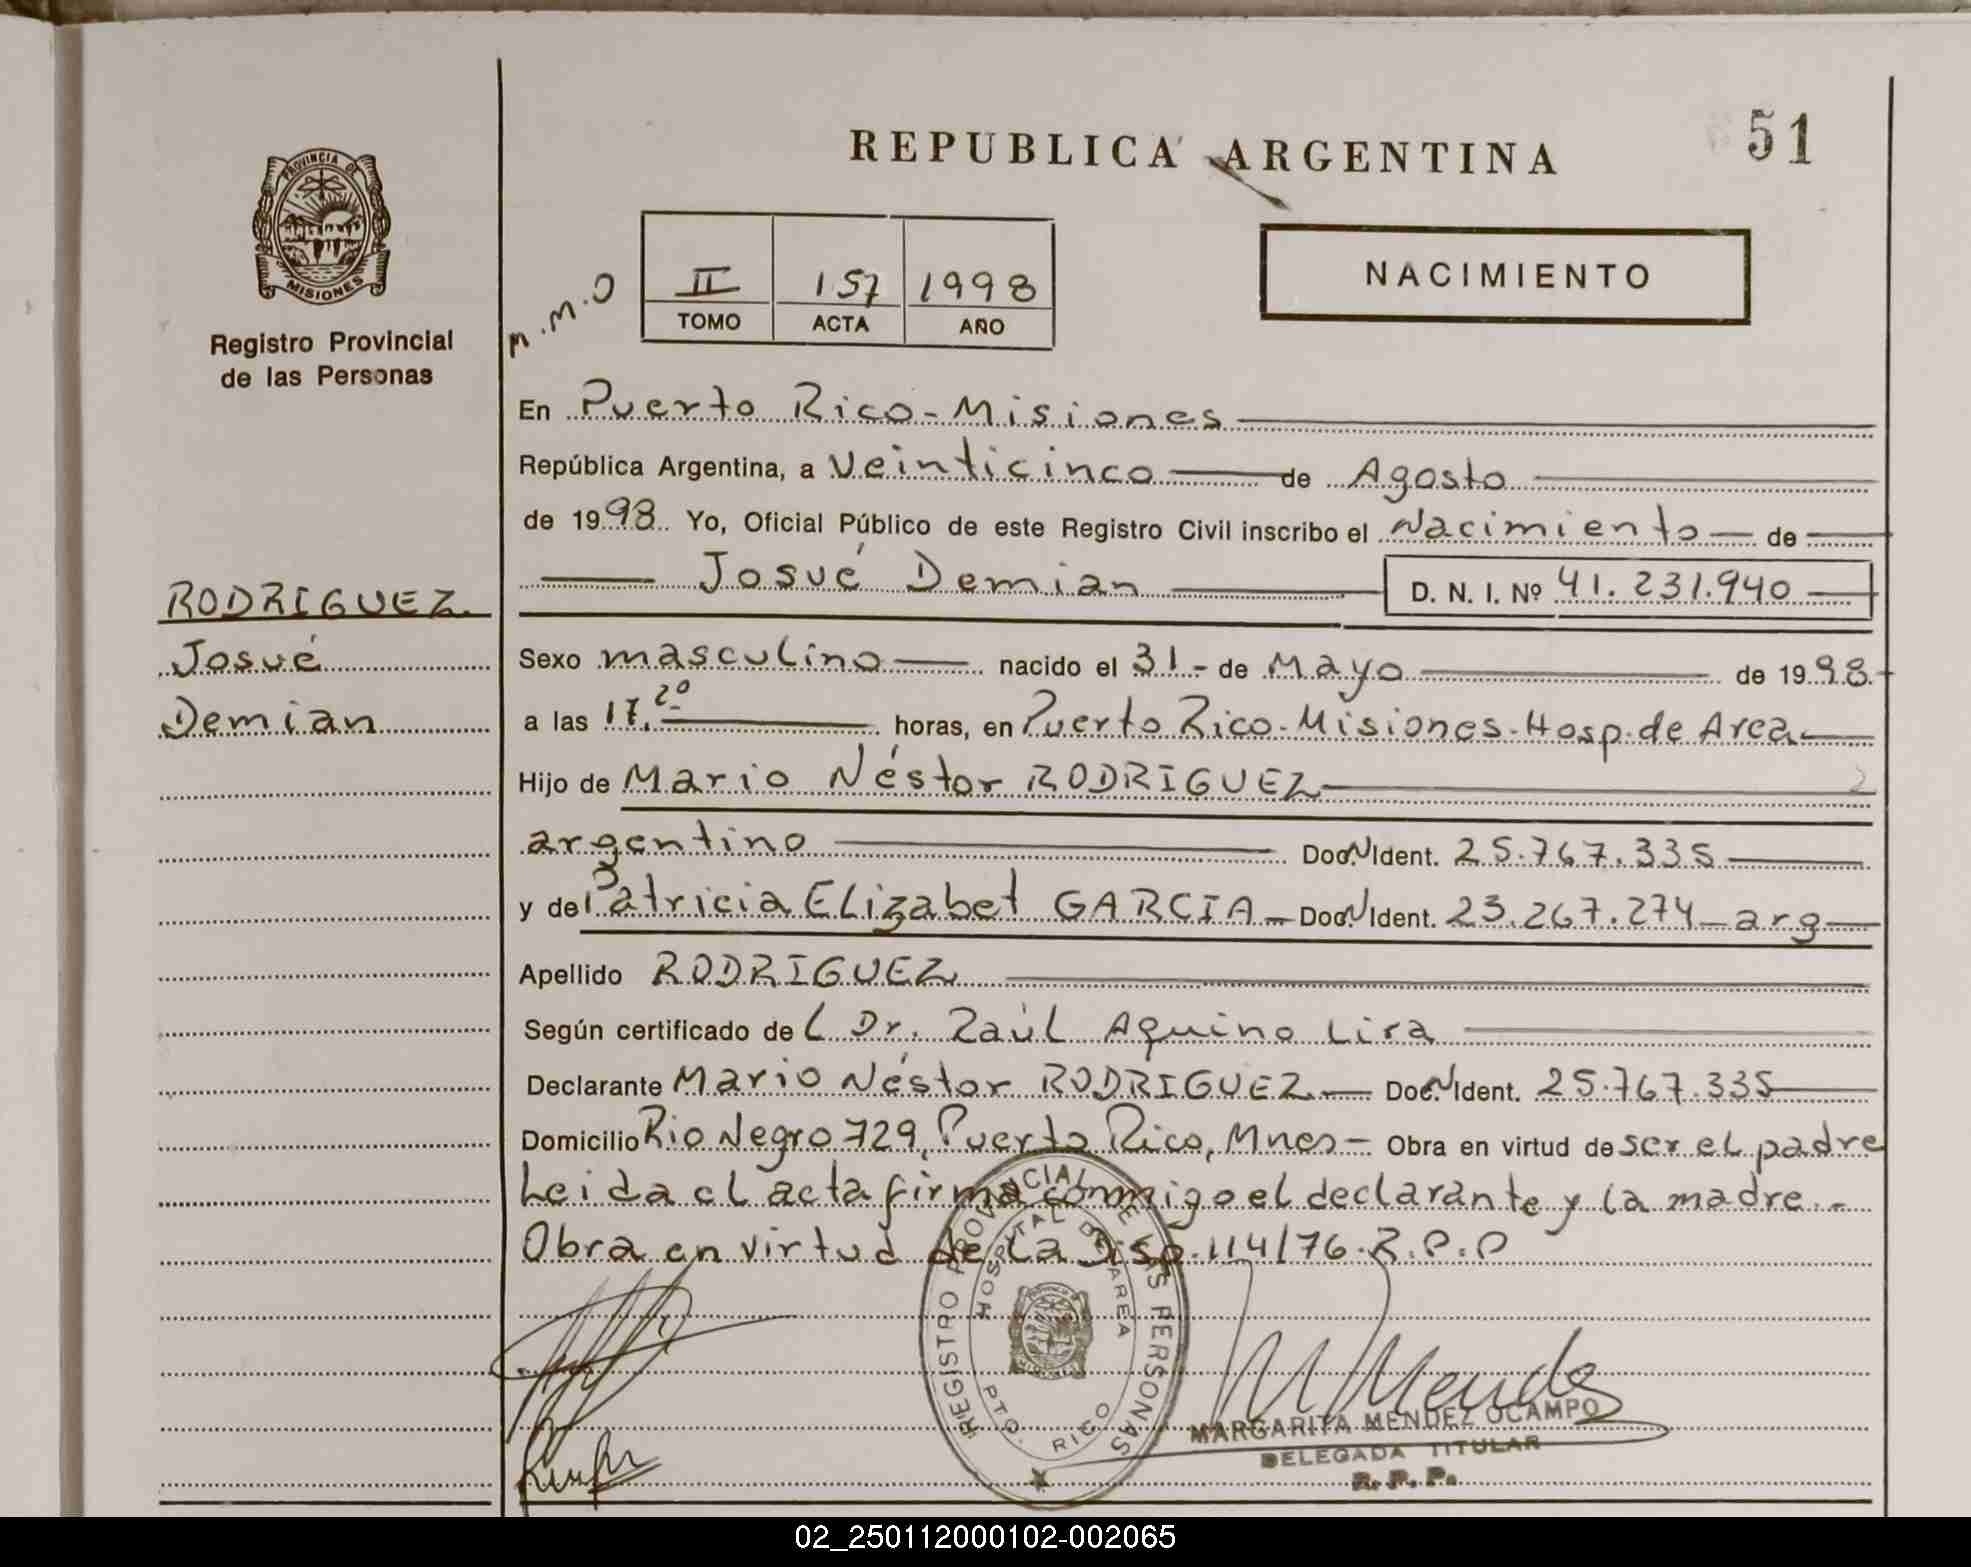 51
REPUBLICA ARGENTINA
PROVINCIA DE
MISIONES
Registro Provincial
de las Personas
M.M.O
II 157 1998
TOMO ACTA AÑO
NACIMIENTO
En Puerto Rico-Misiones
República Argentina, a Veinticinco de Agosto
de 1998 Yo, Oficial Público de este Registro Civil inscribo el Nacimiento de
Josué Demian D. N. I. Nº 41.231.940
RODRIGUEZ
Josué
Demian
Sexo masculino nacido el 31 - de Mayo de 1998
a las 17.20 horas, en Puerto Rico-Misiones-Hosp.de Area
Hijo de Mario Néstor RODRIGUEZ
argentino Doc.N.Ident. 25.767.335
y de Patricia Elizabet GARCIA Doc.N.Ident. 23.267.274 - arg
Apellido RODRIGUEZ
Según certificado del Dr. Raúl Aquino Lira
Declarante Mario Néstor RODRIGUEZ Doc.N.Ident. 25.767.335
Domicilio Rio Negro 729, Puerto Rico, Mnes - Obra en virtud de ser el padre
Leida el acta firma conmigo el declarante y la madre.-
Obra en virtud de la Disp.114/76.R.P.P
REGISTRO PROVINCIAL DE LAS PERSONAS
HOSPITAL DE AREA
PTO. RICO
M Mendez
MARGARITA MENDEZ OCAMPO
DELEGADA TITULAR
R. P. P.
02_250112000102-002065